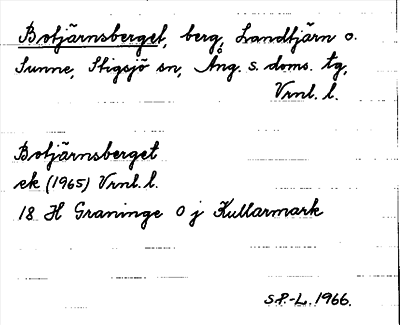 Botjärnsberget, berg, Landtjärn o.
Sunne, Stigsjö sn, Ång. s. doms. tg,
Vrnl. l.
Botjärnsberget
ek (1965) Vrnl. l.
18 H Graninge 0 j Kullarmark
S.P.-L. 1966.